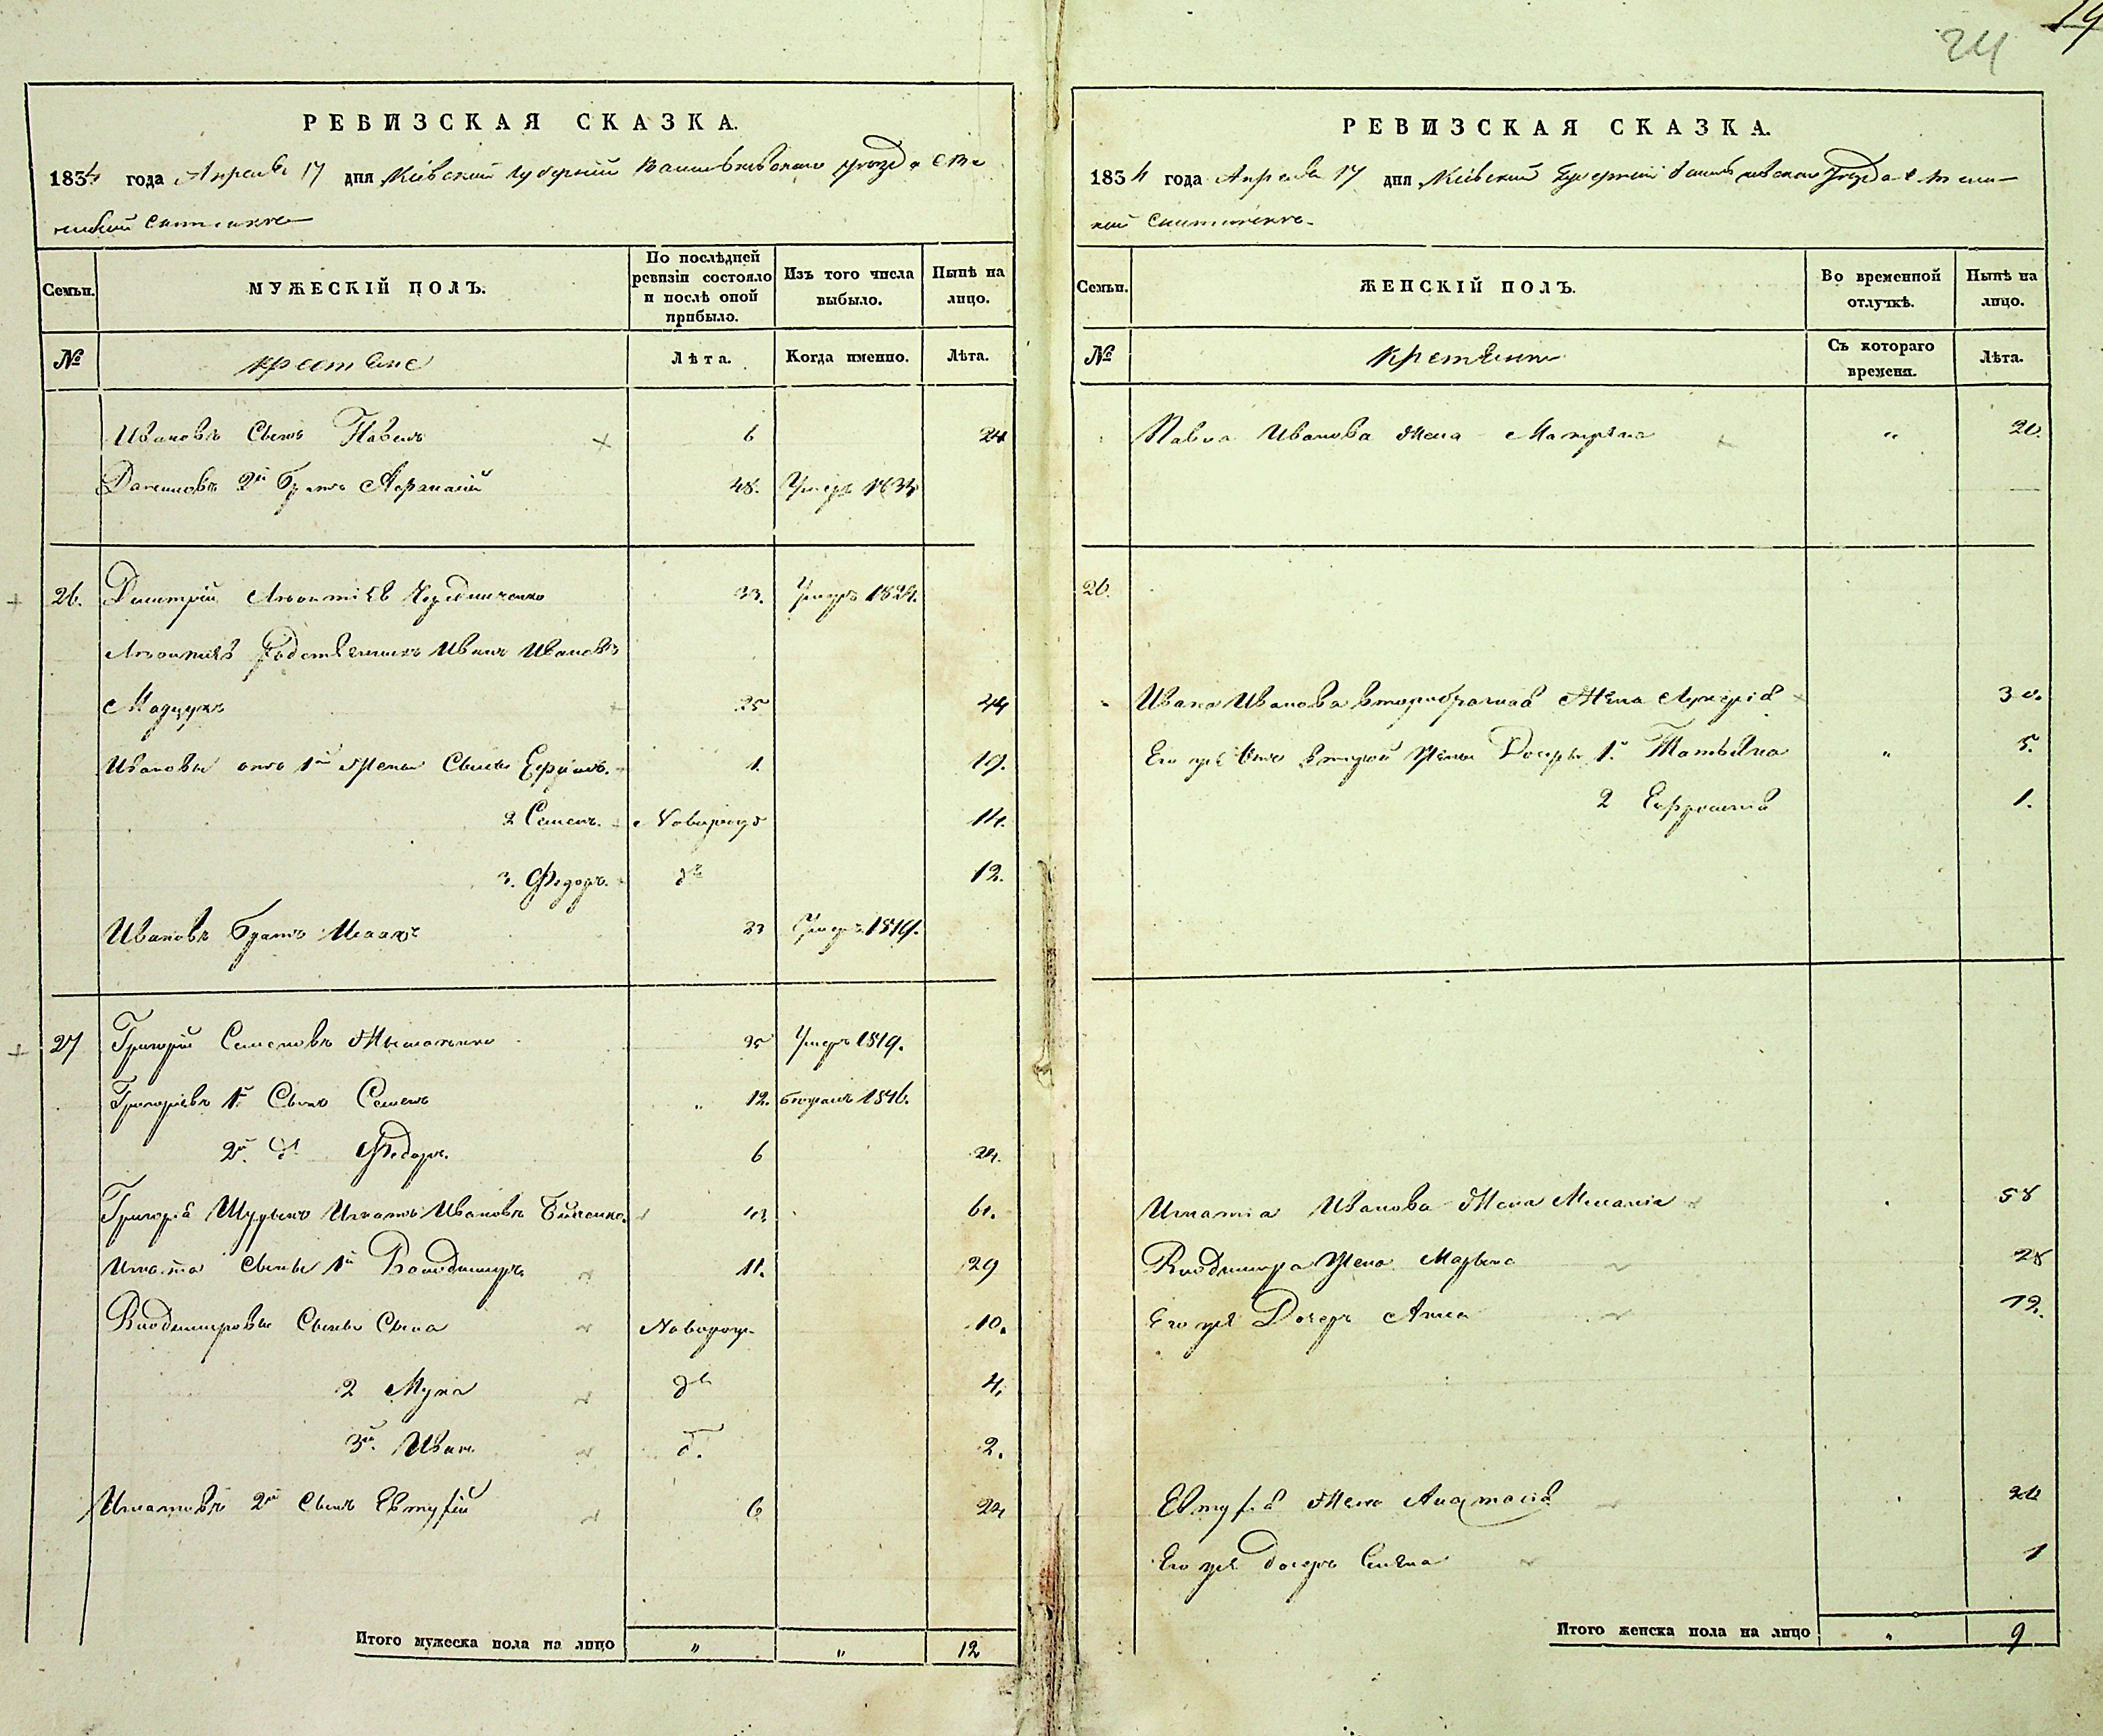 24
19
РЕВИЗСКАЯ СКАЗКА.
1834 года Апреля 17 дня Кіевской Губерніи Васильковскаго Уезда с. Ве
ликой Снитинке
Семьи. МУЖЕСКІЙ ПОЛЪ. По послѣдней ревизіи состояло и послѣ оной прибыло. Изъ того числа выбыло. Нынѣ на лицо.
№ Крестьяне Лѣта. Когда именно. Лѣта.
Ивановъ Сынъ Павелъ 6 24
2й братъ Афанасій 48. Умеръ
26. Дмитрій Чередниченко 33. Умеръ 1824.
Родственникъ Иванъ Ивановъ
25 44
Ивановы отъ 1й Жены Сыны Ефимъ. 1. 19.
2 Семенъ.Новорожд 14.
3. Федоръ. дъ 12.
Ивановъ братъ Исаакъ 23 Умеръ 1819.
27 Григорій Семеновъ 35 Умеръ 1819.
Григорьевъ 1й Сынъ Семенъ 12. 1816.
2й д Федоръ. 6 24.
Григорія Шурынъ Игнатъ Ивановъ 43 61.
Игната Сыны 1й Владимиръ 11. 29
Владимировы Сыны Сава Новорож. 10.
2 Лука дъ 4.
3й Иванъ д. 2.
Игнатовъ 2й Сынъ Евтуфій 6 24
Итого мужеска пола на лицо " " 12
РЕВИЗСКАЯ СКАЗКА.
1834 года Апреля 17 дня Кіевской Губерніи Васильковскаго Уезда с. Вели-
кой Снитинке
Семьи. ЖЕНСКІЙ ПОЛЪ. Во временной отлучкѣ. Нынѣ на лицо.
№ Крестьяне Съ котораго времени. Лѣта.
Павла Иванова Жена Матрена " 20.
26.
Ивана Иванова второбрачная Жена Лукерія 30.
Его же отъ второй Жены Дочеры 1. Татьяна " 5.
2 Ефросинія 1.
Игнатія Иванова Жена Меланія 58
Владимира Жена Марина 28
Его же Дочерь Анна 12.
Евтуфія Жена Анастасія 24
Его же дочерь 1
Итого женска пола на лицо " 9